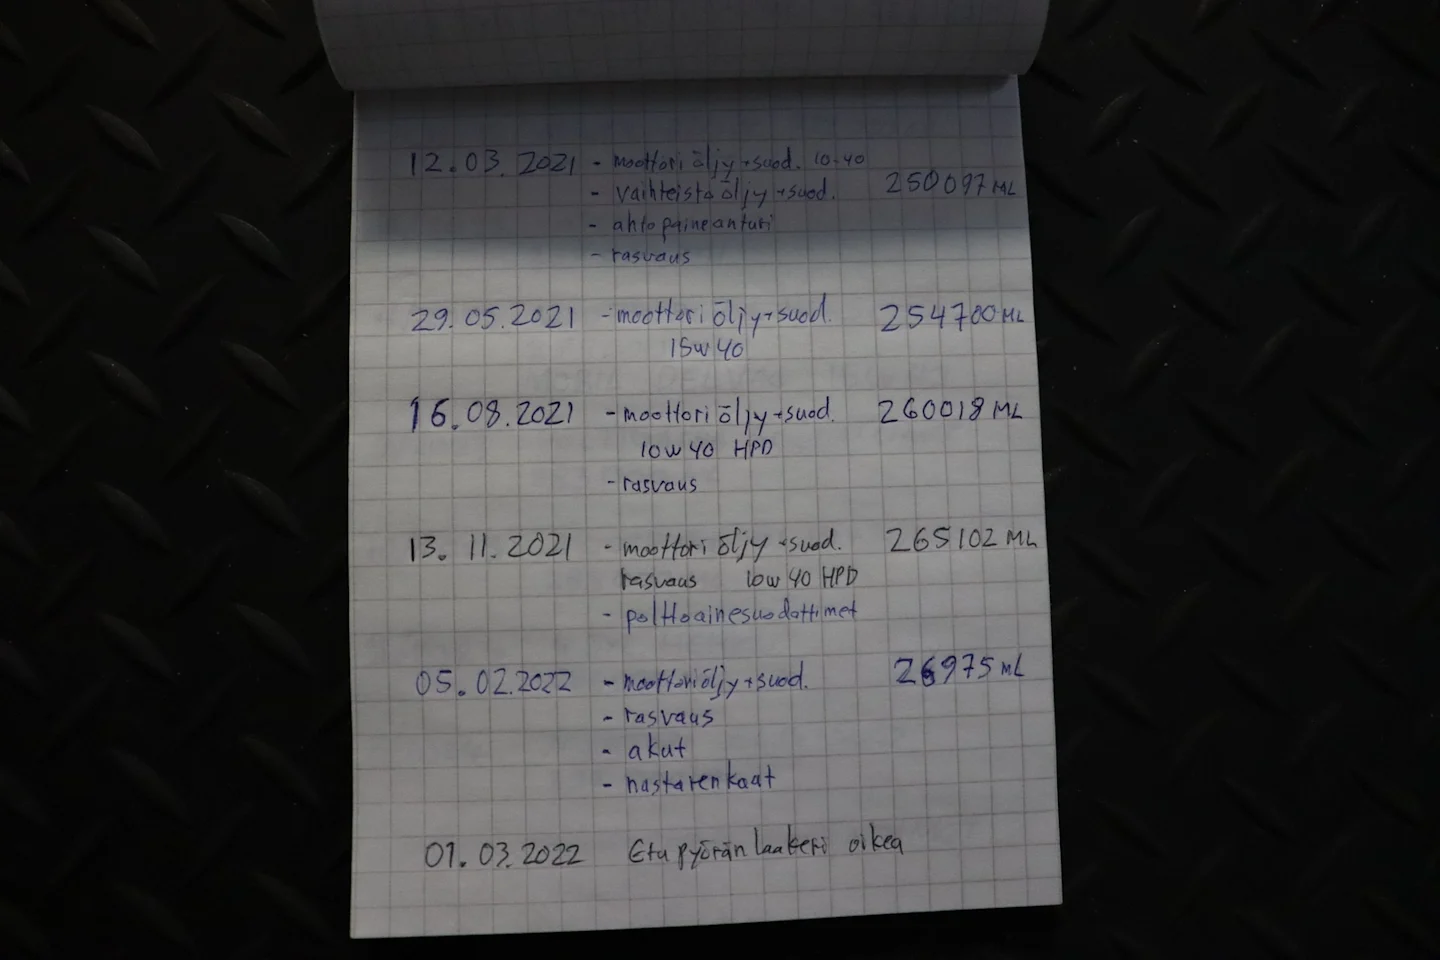 12.03.2021 - moottori öljy + suod. 10-40
- vaihteistoöljy + suod. 250097 ML
- ahtopaineanturi
- rasvaus
29.05.2021 - moottori öljy + suod. 254700 ML
15w40
16.08.2021 - moottori öljy + suod. 260018 ML
10w40 HPD
- rasvaus
13.11.2021 - moottori öljy + suod. 265102 ML
rasvaus 10w40 HPD
- polttoainesuodattimet
05.02.2022 - moottoriöljy + suod. 26975 ML
- rasvaus
- akut
- nastarenkaat
01.03.2022 Etupyörän laakeri oikea